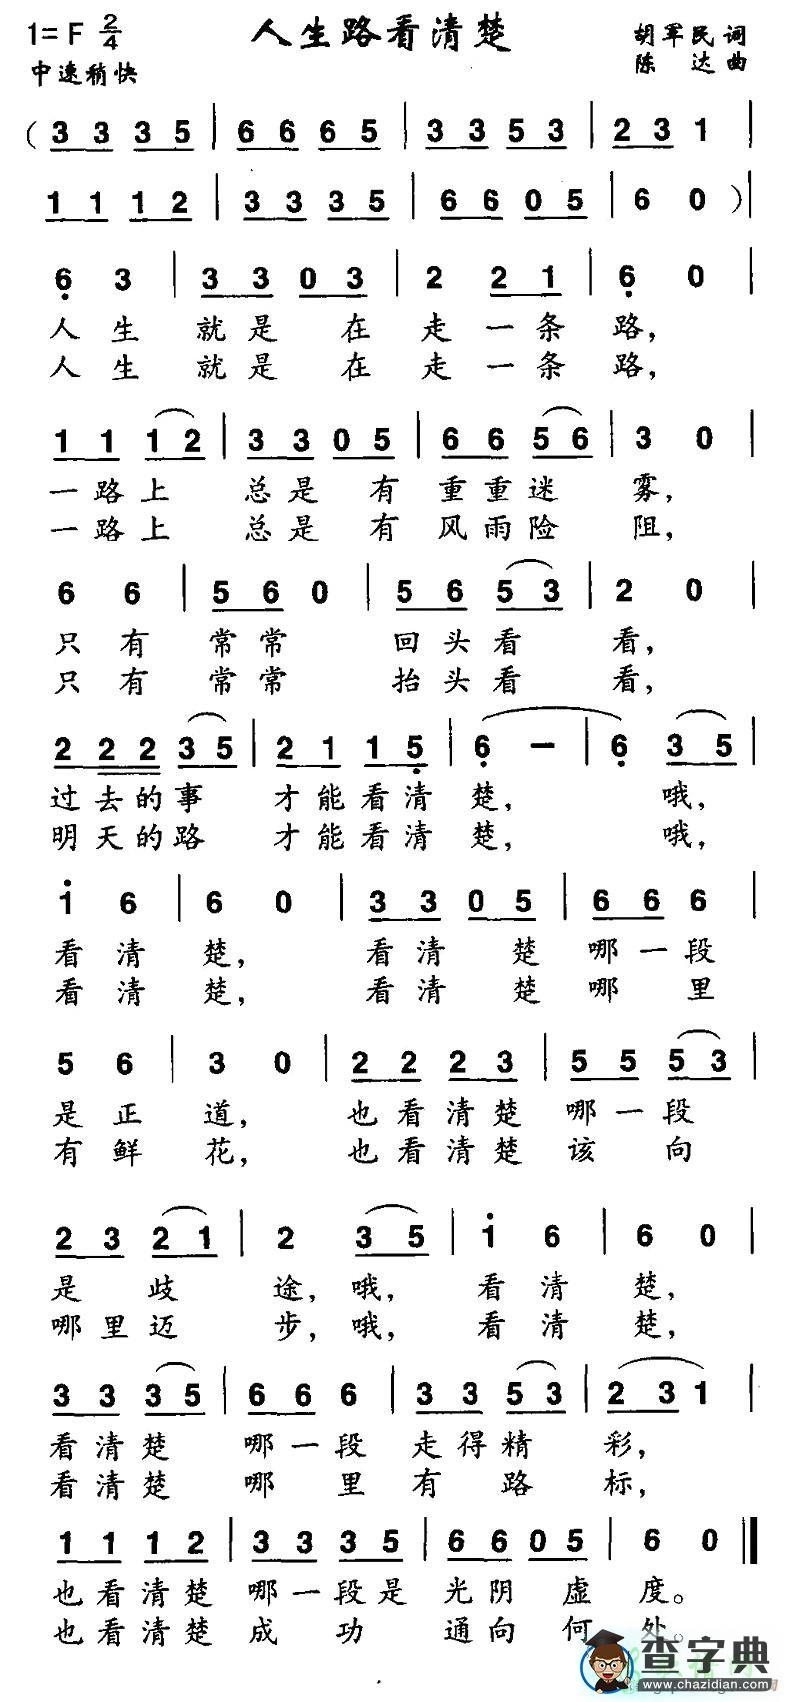 1=F 2/4 人生路看清楚 胡军民 词
中速稍快 陈达 曲
( 3 3 3 5 | 6 6 6 5 | 3 3 5 3 | 2 3 1 |
1 1 1 2 | 3 3 3 5 | 6 6 0 5 | 6 0 ) |
6̣ 3 | 3 3 0 3 | 2 2 1 | 6̣ 0 |
人生 就是 在走一条路,
人生 就是 在走一条路,
1 1 1 2 | 3 3 0 5 | 6 6 5 6 | 3 0 |
一路上 总是 有重重迷雾,
一路上 总是 有风雨险阻,
6 6 | 5 6 0 | 5 6 5 3 | 2 0 |
只有 常常 回头看看,
只有 常常 抬头看看,
2 2 2 3 5 | 2 1 1 5̣ | 6̣ - | 6̣ 3 5 |
过去的事 才能看清楚, 哦,
明天的路 才能看清楚, 哦,
1̇ 6 | 6 0 | 3 3 0 5 | 6 6 6 |
看清楚, 看清楚哪一段
看清楚, 看清楚哪里
5 6 | 3 0 | 2 2 2 3 | 5 5 5 3 |
是正道, 也看清楚哪一段
有鲜花, 也看清楚该向
2 3 2 1 | 2 3 5 | 1̇ 6 | 6 0 |
是歧途,哦, 看清楚,
哪里迈步,哦, 看清楚,
3 3 3 5 | 6 6 6 | 3 3 5 3 | 2 3 1 |
看清楚 哪一段 走得精彩,
看清楚 哪里 有路标,
1 1 1 2 | 3 3 3 5 | 6 6 0 5 | 6 0 ‖
也看清楚哪一段是光阴虚度。
也看清楚成功 通向何处。
查字典
www.chazidian.com